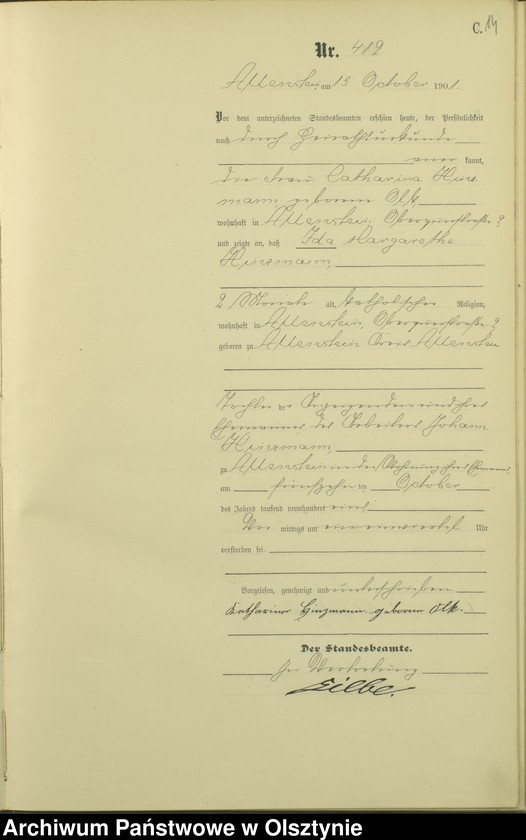 C.
Nr. 419
Allenstein am 15 October 1901.
Vor dem unterzeichneten Standesbeamten erschien heute, der Persönlichkeit
nach durch Heirathsurkunde
aner kannt,
die Frau Catharina Hinz
mann geborene Olk
wohnhaft in Allenstein, Oberquerstraße
und zeigte an, daß Ida Margarethe
Hinzmann,
2 Monate alt, katholischer Religion,
wohnhaft in Allenstein, Oberquerstraße
geboren zu Allenstein Kreis Allenstein
Tochter der Anzeigenden und ihres
Ehemannes, des Arbeiters Johann
Hinzmann,
zu Allenstein in der Wohnung ihres Ehemannes,
am fünfzehn ten October
des Jahres tausend neunhundert eins
Vor mittags um ein einviertel Uhr
verstorben sei.
Vorgelesen, genehmigt und unterschrieben
Katharina Hinzmann geborene Olk.
Der Standesbeamte.
In Vertretung
Archiwum Państwowe w Olsztynie